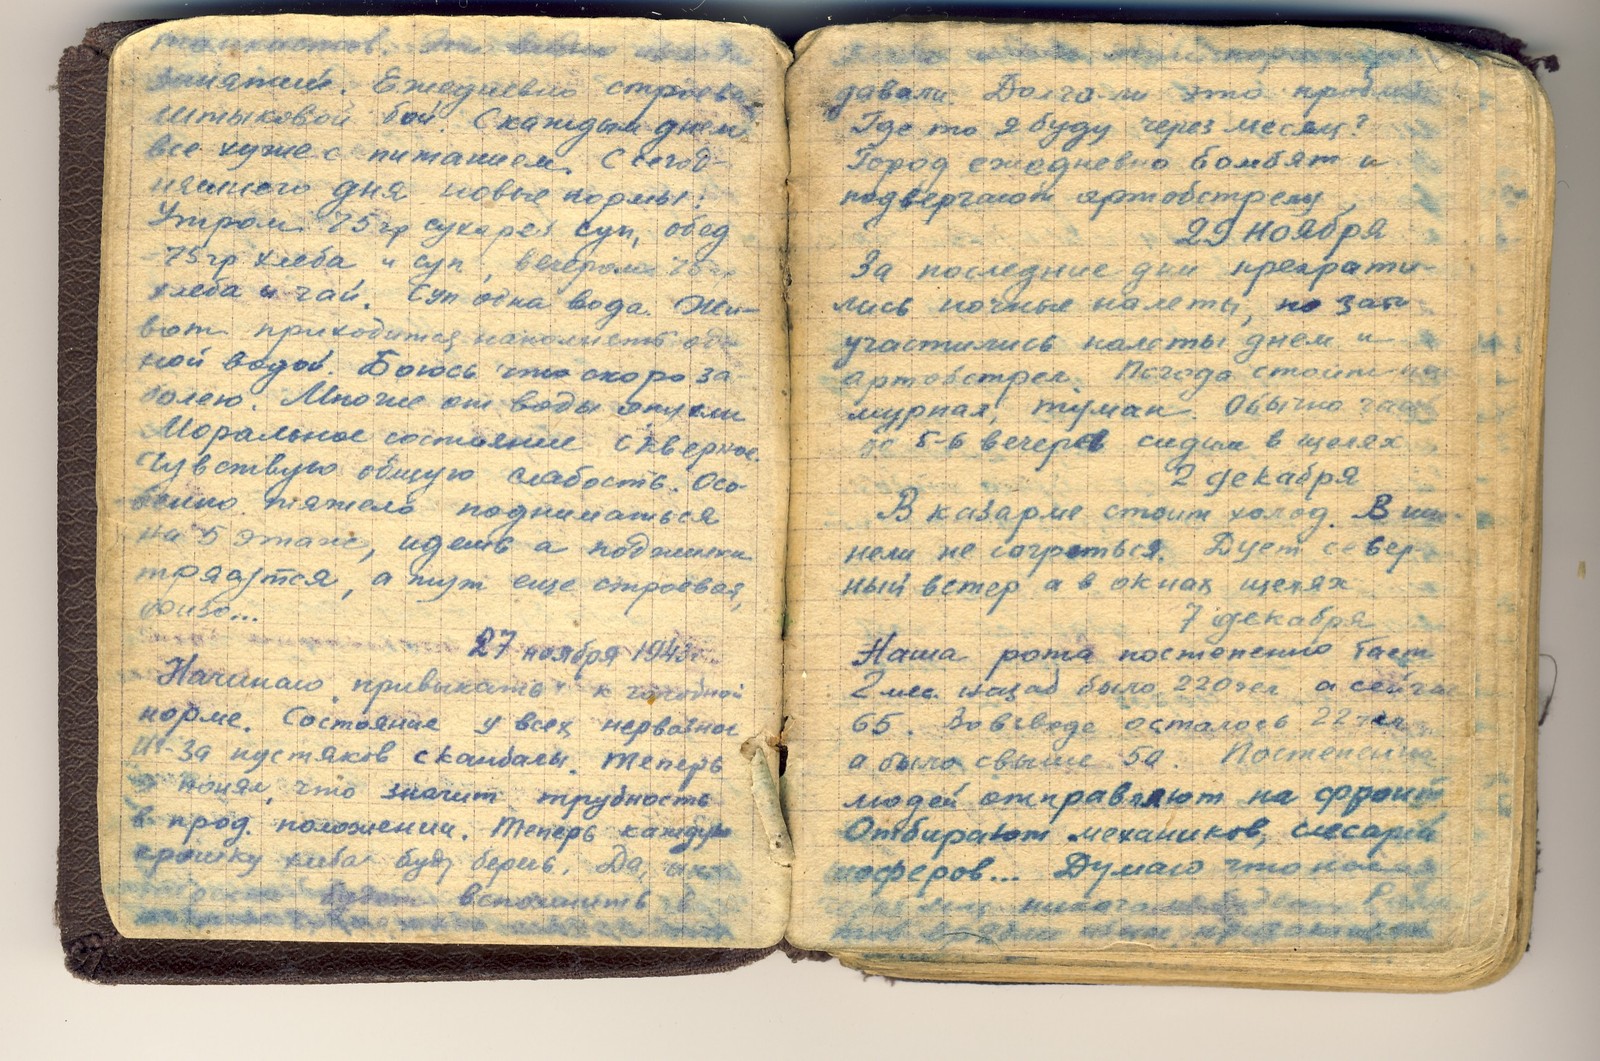 танкистов. Это видно из
занятий. Ежедневно строевая
штыковой бой. С каждым днем
все хуже с питанием. С сегод-
няшнего дня новые нормы:
Утром 75 гр сухарей суп, обед
75 гр хлеба и суп, вечером 75 гр
хлеба и чай. Суп одна вода. Жи-
вот приходится наполнять од-
ной водой. Боюсь что скоро за-
болею. Многие от воды опухли
Моральное состояние скверное.
Чувствую общую слабость. Осо-
бенно тяжело подниматься
на 5 этаж, идешь а поджилки
трясутся, а тут еще строевая,
физо...
27 ноября 194
Начинаю привыкать к голодной
норме. Состояние у всех нервозное
Из-за пустяков скандалы. Теперь
я понял, что значит трудность
в прод. положении. Теперь каждую
крошку хлеба буду беречь. Да,
будет вспомнить в
давали. Долго ли это
Где то я буду через месяц?
Город ежедневно бомбят и
подвергают артобстрелу,
29 ноября
За последние дни прекрати-
лись ночные налеты, но зато
участились налеты днем и
артобстрел. Погода стоит
мурная, туман. Обычно
до 5-6 вечера сидим в щелях
2 декабря
В казарме стоит холод. В ши-
нели не согреться. Дует север-
ный ветер а в окнах щелях
7 декабря
Наша рота постепенно тает
2 мес. назад было 220 чел а сейчас
65. Во взводе осталось 22 чел
а было свыше 50. Постепенно
людей отправляют на фронт
Отбирают механиков, слесарей
шоферов... Думаю что
никогда